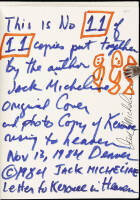 This is No 11 of
11 copies put together
by the author
Jack Micheline
Original Cover
and photo Copy of Kerouac
rising to heaven
Nov 13, 1984 Denver
©1984 JACK MICHELINE
Letter to Kerouac in Heaven